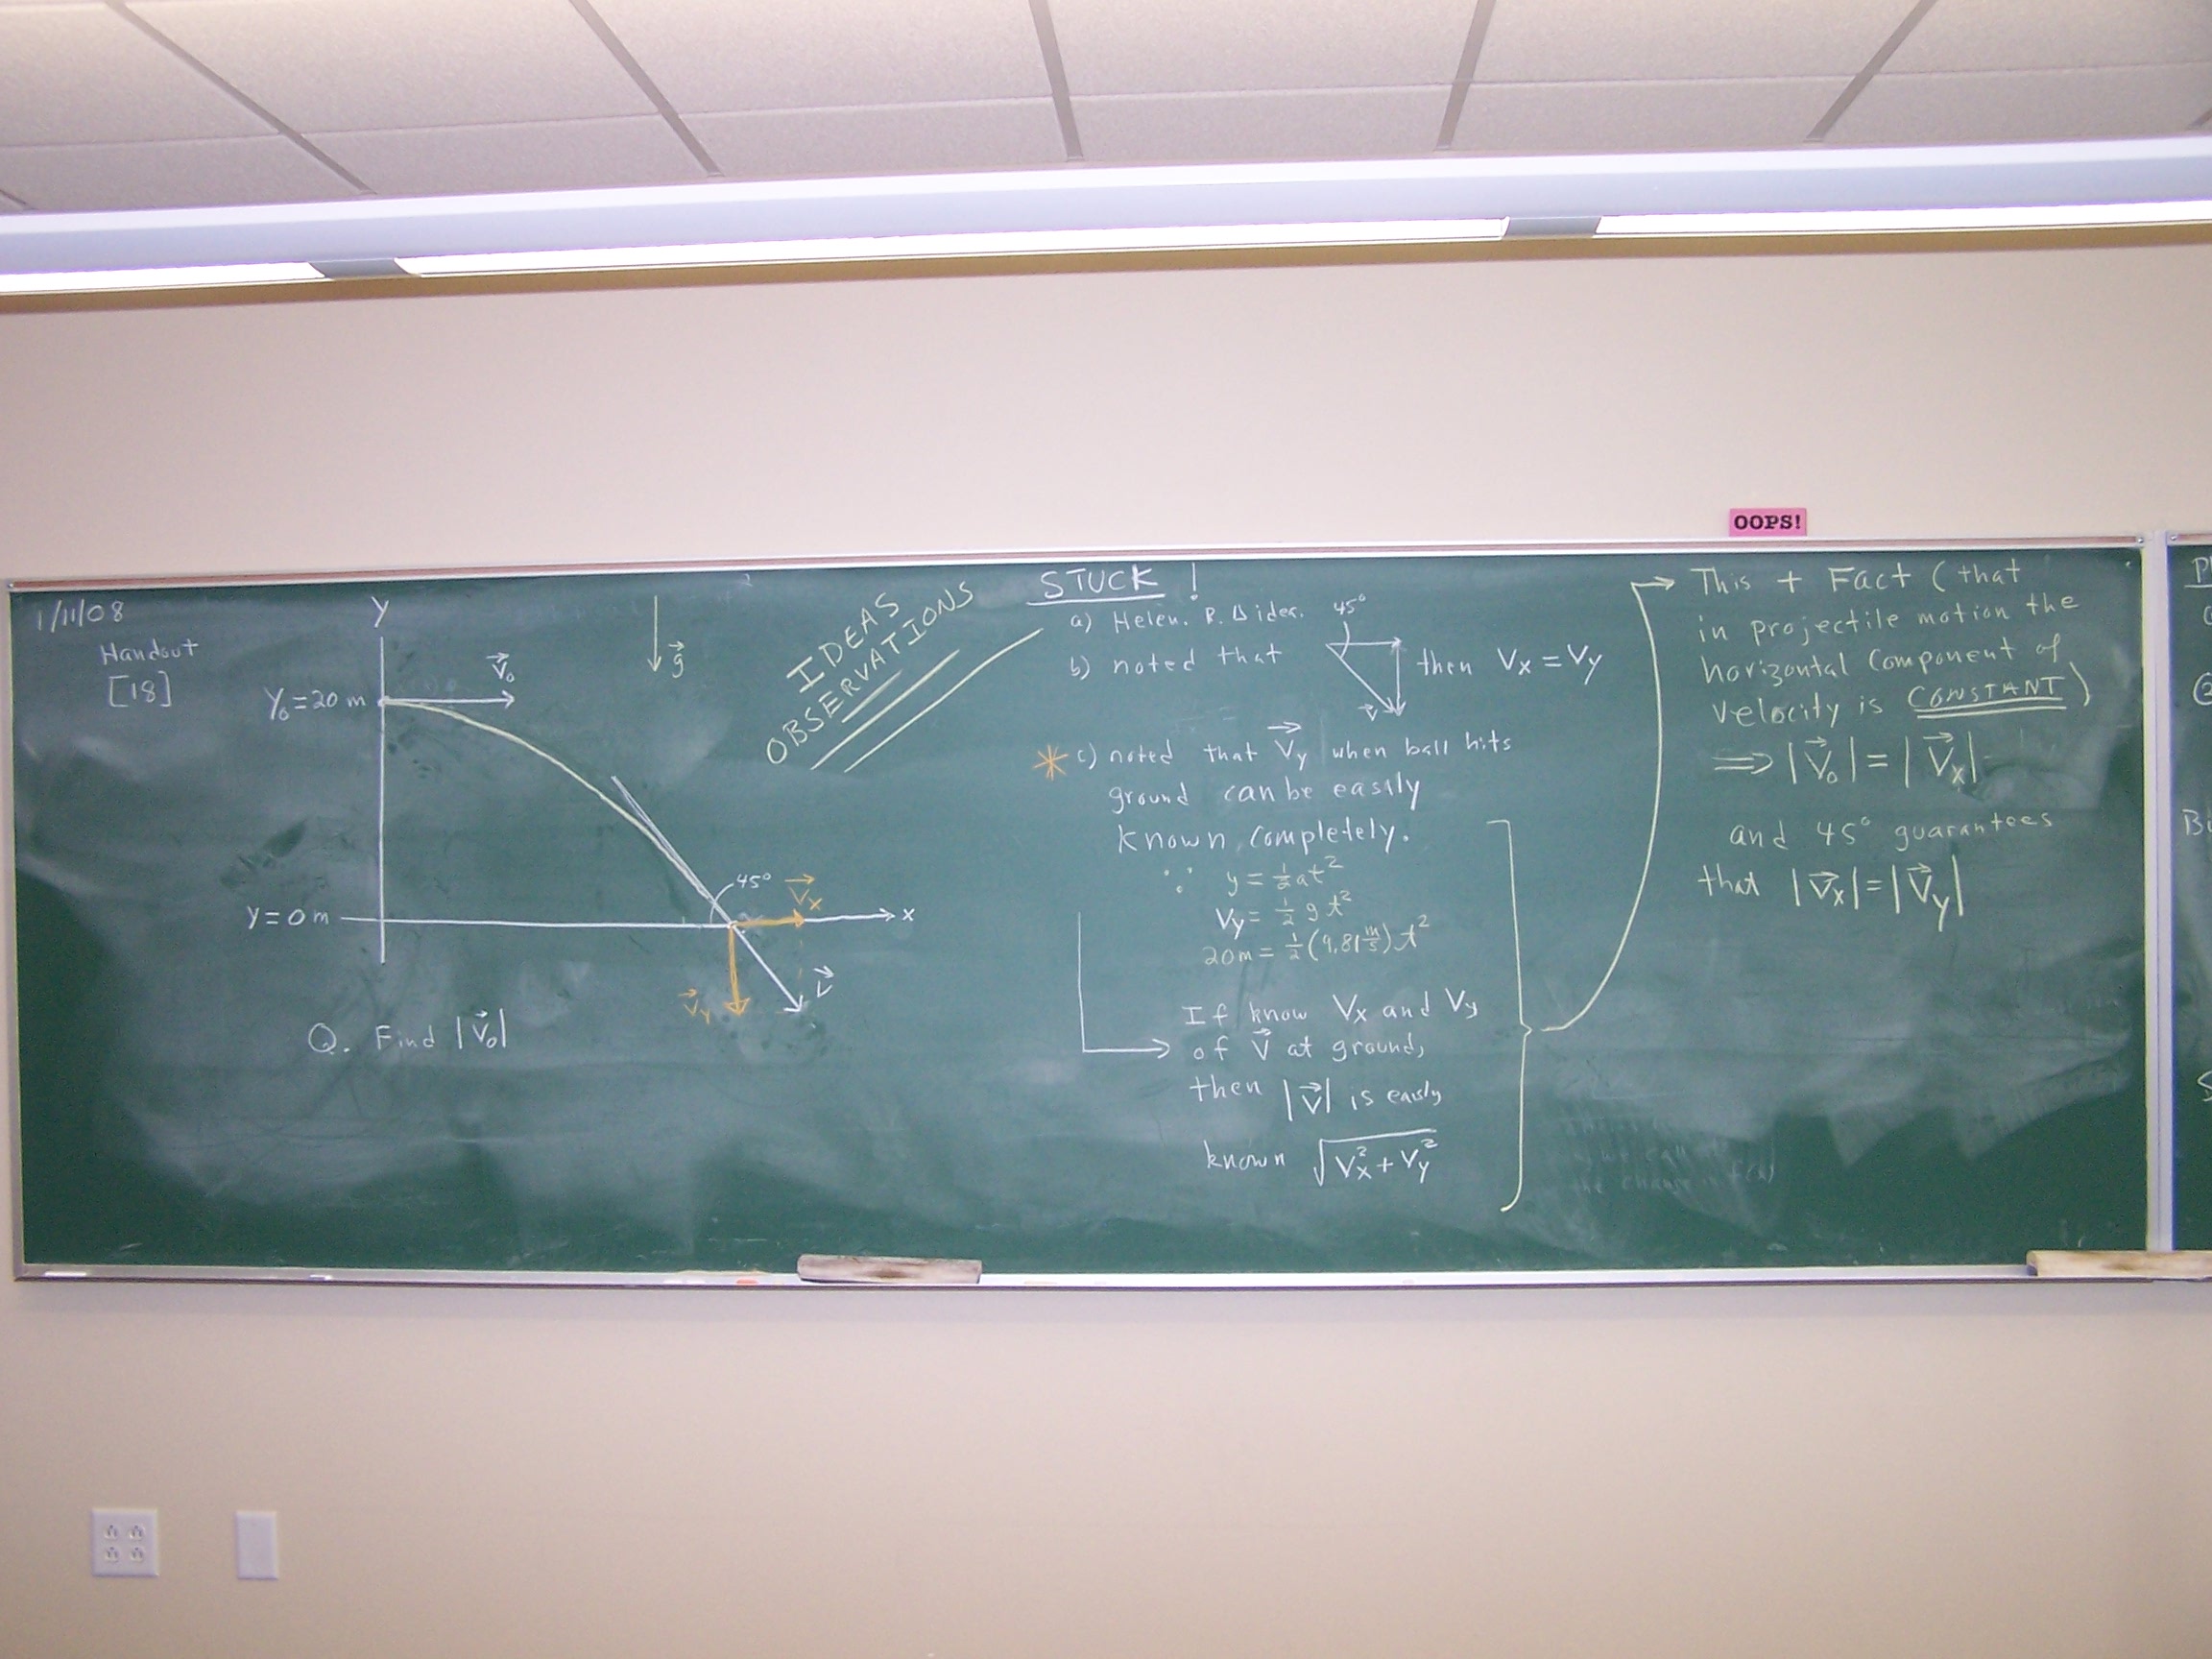 OOPS!
1/11/08
Handout
[18]
y
y₀ = 20 m
v⃗₀
g⃗
45°
v⃗x
y = 0 m
x
v⃗y
v⃗
Q. Find |v⃗₀|
IDEAS
OBSERVATIONS
STUCK!
a) Helen. R. Δ idea.
45°
b) noted that
v⃗
then Vx = Vy
c) noted that V⃗y when ball hits
ground can be easily
known completely.
∵ y = ½at²
Vy = ½ g t²
20m = ½ (9.81 m/s) t²
If know Vx and Vy
of V⃗ at ground,
then |V⃗| is easly
known √(Vx² + Vy²)
This + Fact (that
in projectile motion the
horizontal component of
velocity is CONSTANT)
⇒ |V⃗₀| = |V⃗x|
and 45° guarantees
that |V⃗x| = |V⃗y|